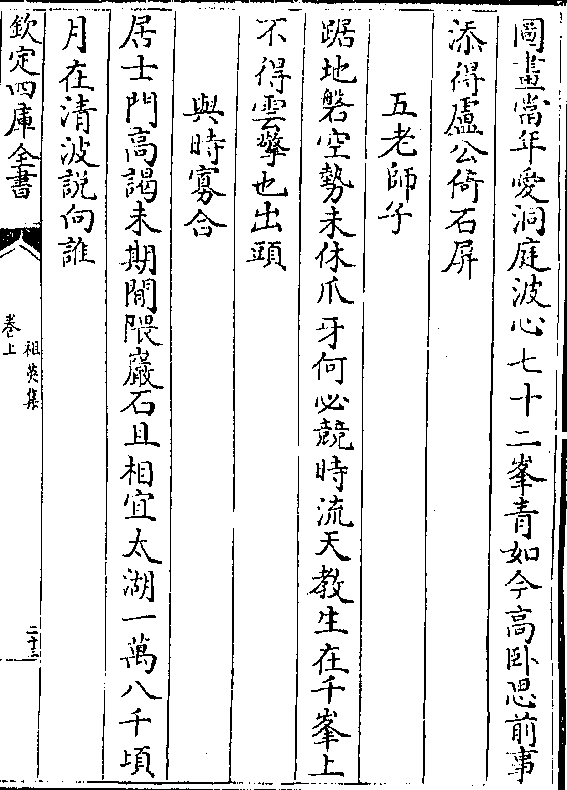 圖畫當年愛洞庭波心七十二峯青如今高臥思前事
添得盧公倚石屏
五老師子
踞地磐空勢未休爪牙何必競時流天教生在千峯上
不得雲擎也出頭
與時寡合
居士門高謁未期閒隈巖石且相宜太湖一萬八千頃
月在清波説向誰
欽定四庫全書
祖英集
卷上
二十三